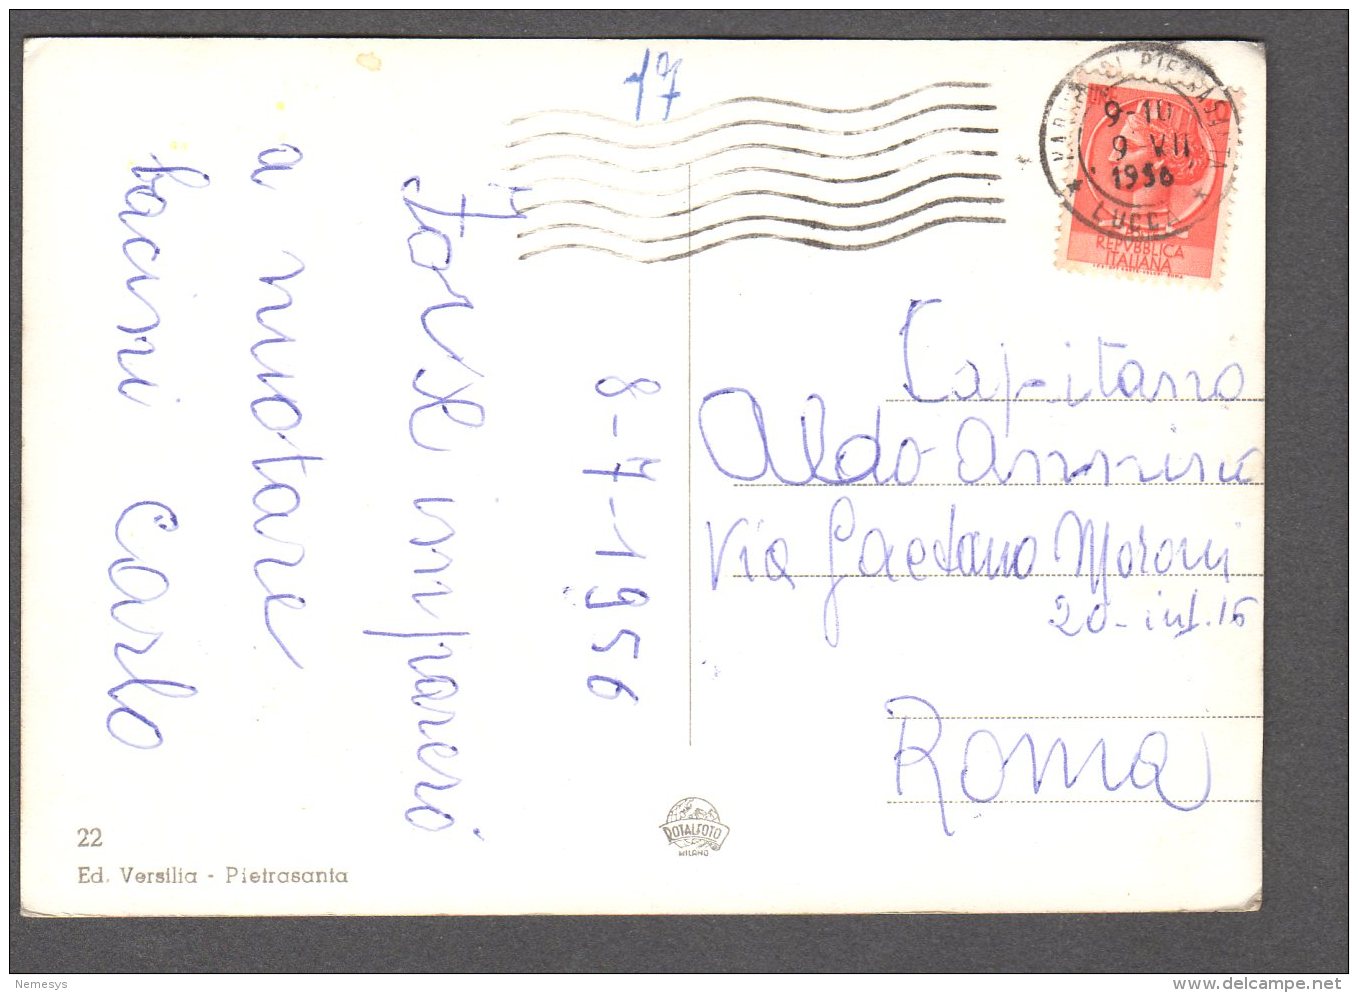 17
8-7-1956
Forse imparerò
a nuotare
bacini Carlo
MARINA DI PIETRASANTA
9-10
9 VII
1956
* LUCCA *
REPVBBLICA
ITALIANA
Capitano
Aldo
Via Gaetano Moroni
20-int.15
Roma
22
Ed. Versilia - Pietrasanta
ROTALFOTO
MILANO
Nemesys
www.delcampe.net